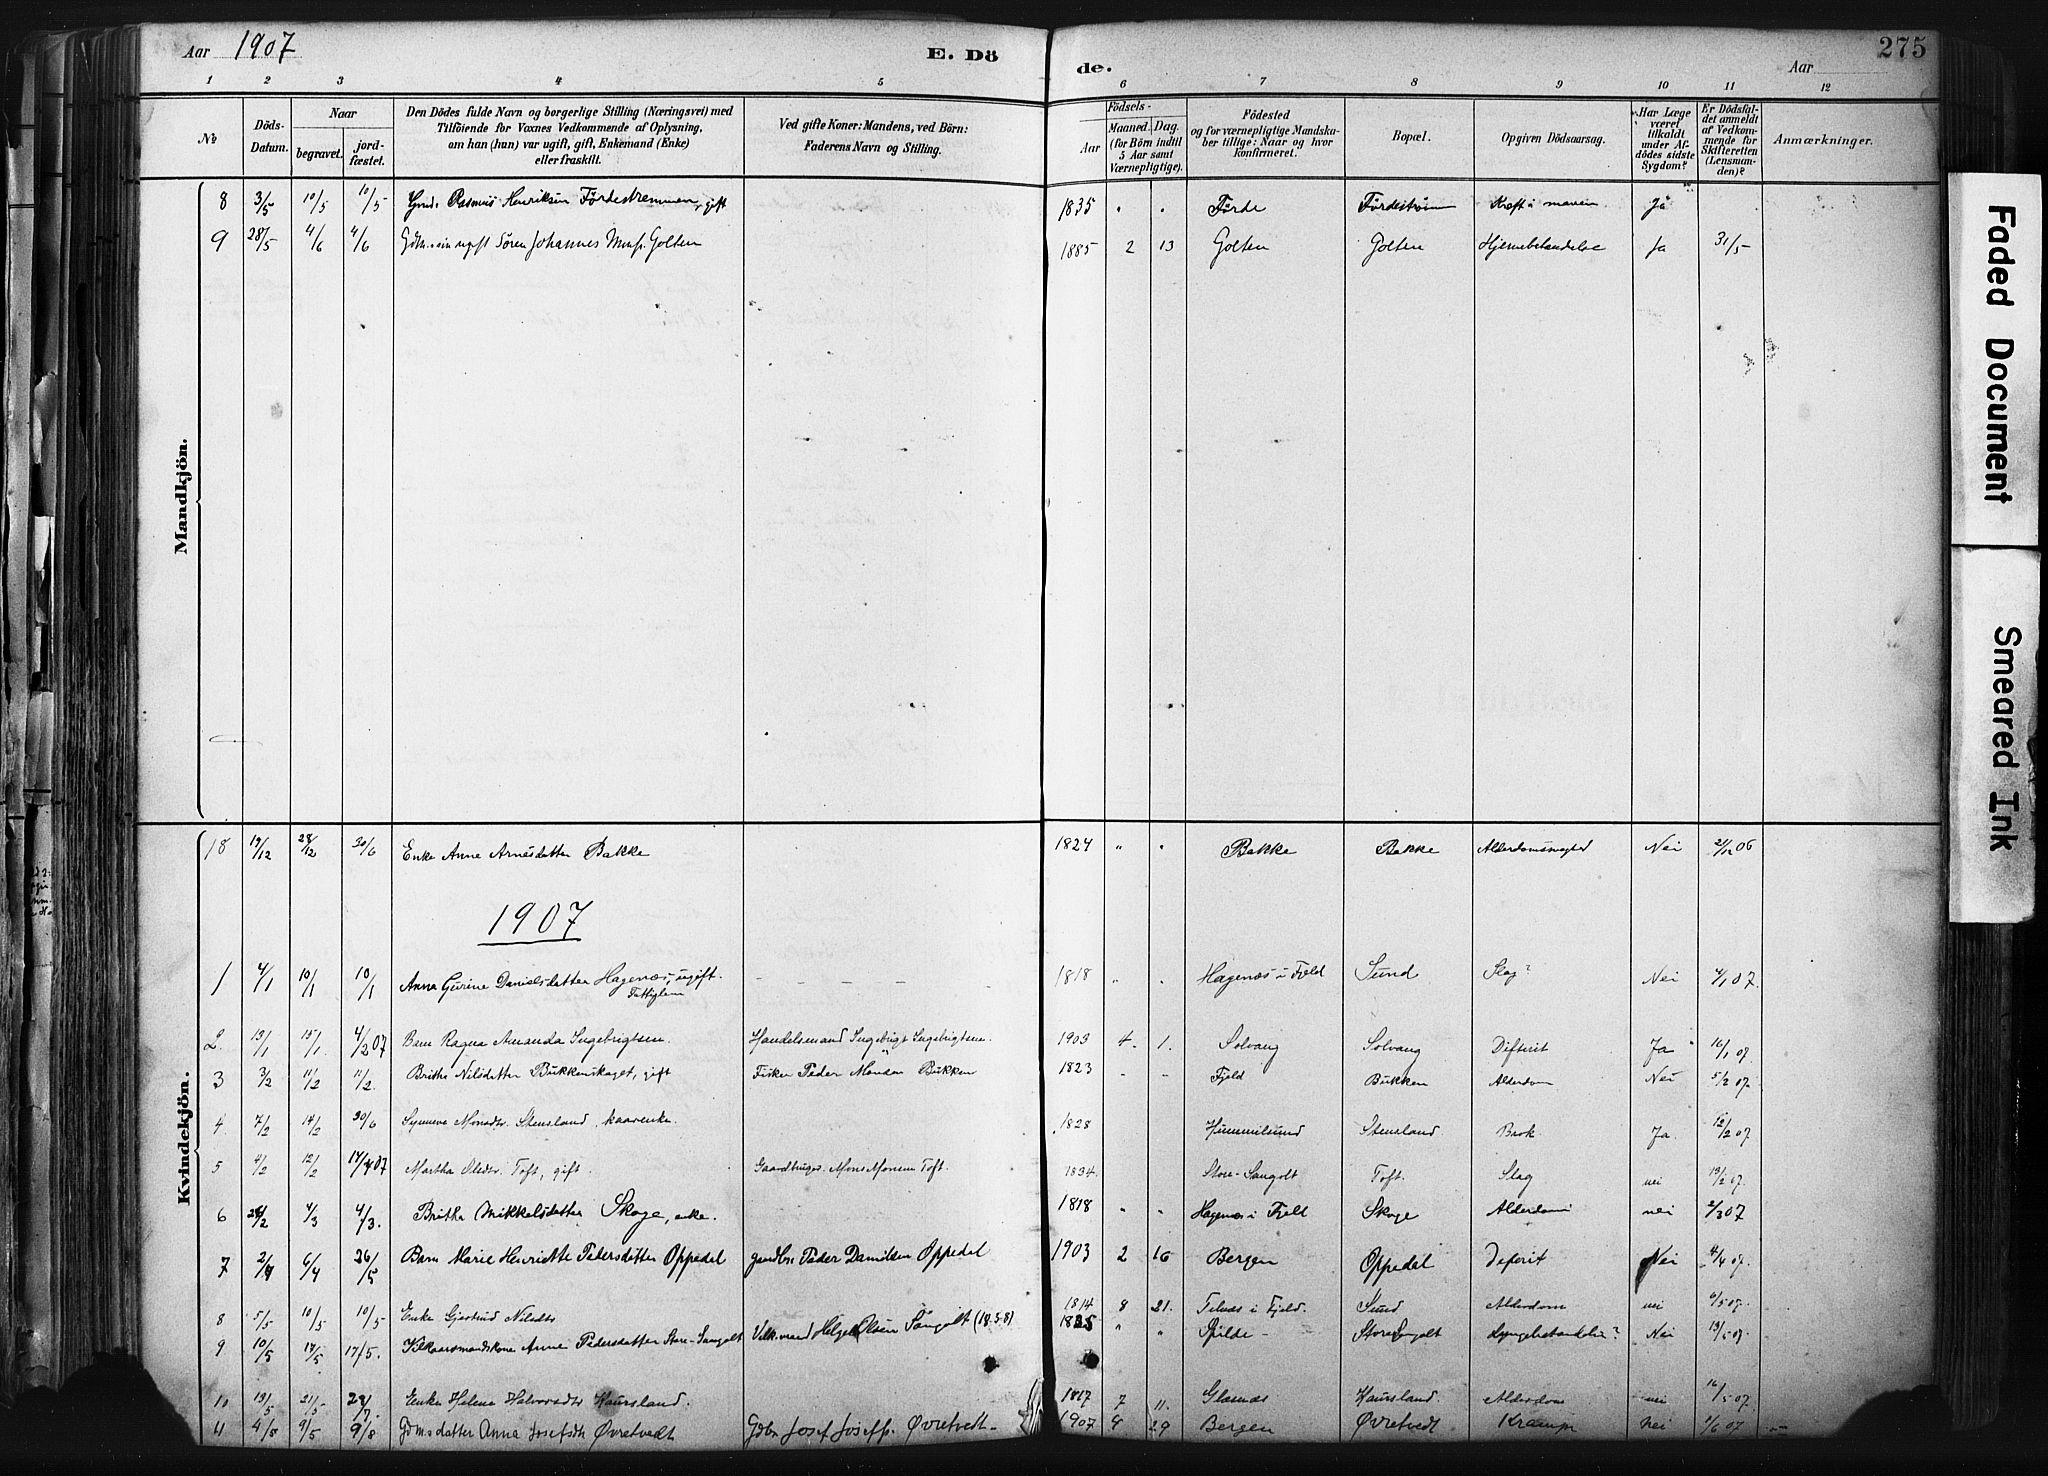 Aar 1907 E. Dö de. Aar 275
1 2 3 4 5 6 7 8 9 10 11 12
No Döds-Datum. Naar begravet. jordfæstet. Den Dödes fulde Navn og borgerlige Stilling (Næringsvei) med Tilföiende for Voxnes Vedkommende af Oplysning, om han (hun) var ugift, gift, Enkemand (Enke) eller fraskilt. Ved gifte Koner: Mandens, ved Börn: Faderens Navn og Stilling. Födsels- Aar Maaned. Dag. (for Börn indtil 5 Aar samt Værnepligtige). Födested og for værnepligtige Mandskaber tillige: Naar og hvor konfirmeret. Bopæl. Opgiven Dödsaarsag. Har Læge været tilkaldt under Afdödes sidste Sygdom? Er Dödsfaldet anmeldt af Vedkommende for Skifteretten (Lensmanden)? Anmærkninger.
Mandkjön.
8 3/5 10/5 10/5 Rasmus Henriksen Fördestrømmen, gift 1835 " " Førde Førdestrøm Kræft i maven Ja
9 28/5 4/6 4/6 Søren Johannes Golten 1885 2 13 Golten Golten Hjernebetændelse Ja 31/5
Kvindekjön.
18 19/12 28/12 30/6 Enke Anne Arnesdatter Bakke 1824 " " Bakke Bakke Alderdomssvaghed Nei 21/12 06
1907
1 4/1 10/1 10/1 Anna Gurine Danielsdatter Hagenæs, ugift. - - - - 1818 " " Hagenæs i Fjeld Sund Slag? Nei 4/1 07.
Fattiglem
2. 13/1 15/1. 4/2 07 Barn Ragna Amanda Ingebrigtsen. Handelsmand Ingebrigt Ingebrigtsen. 1903 4. 1. Solvang Solvang Difterit Ja 16/1 07.
3 3/2 11/2 11/2. Britha Nilsdatter Bukkenskaget, gift Fisker Peder Monsen Bukken 1823 - - Fjeld Bukken Alderdom Nei 5/2 07.
4. 7/2 14/2 30/6 Synneva Monsdtr. Stensland, kaarenke. 1828 Hummelsund Stensland. Brok. Ja. 12/2 07.
5 4/2 12/2 Martha Olsdtr. Toft, gift. Gaardbruger Mons Monsen Toft. 1834. Store-Sangolt Toft. Slag nei 13/2 07.
6 4/3 4/3. Britha Mikkelsdatter Skoge, enke. 1818 " " Hagenæs i Fjeld Skoge Alderdom nei 2/3 07
7 2/4 6/4 26/5 Barn Marie Henriette Pedersdatter Oppedal gaardbr. Peder Danielsen Oppedal 1903 2 16 Bergen Oppedal Difterit Nei 4/4 07.
8 5/5 10/5 10/5 Enke Gjertrud Nilsdtr 1814 8 21. i Fjeld. Sund Alderdom nei 6/5 07.
9 10/5 17/5 17/5. Vilkaarsmandskone Anne Pedersdatter Store-Sangolt Vilk.mand Helge Olsen Sangolt (18.5.8) 1835 " " Spilde - Store Sangolt Lungebetændelse? Nei 13/5 07.
10 13/5 21/5 28/7. Enke Helena Halvorsdtr Kausland. 1817 7 11. Glesnæs Kausland. Alderdom nei 16/5 07.
11 4/5 9/5 9/8 Gdm.sdatter Anna Josefsdtr Øvretvedt Gdbr Josef Josefs. Øvretvedt - 1907 4 29 Bergen Øvretvedt Krampe Nei 1/6 07 -
Faded Document
Smeared Ink